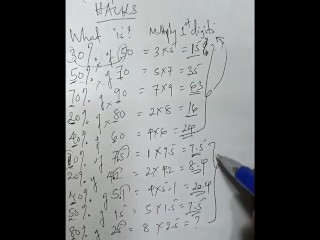 HACKS
What is? Multiply 1st digits
30% of 50 = 3×5 = 15
50% of 70 = 5×7 = 35
70% of 90 = 7×9 = 63
20% of 80 = 2×8 = 16
40% of 60 = 4×6 = 24
10% of 75 = 1×7.5 = 7.5
20% of 42 = 2×42 = 8.4
40% of 51 = 4×5.1 = 20.4
50% of 15 = 5×1.5 = 7.5
80% of 25 = 8×2.5 = ?